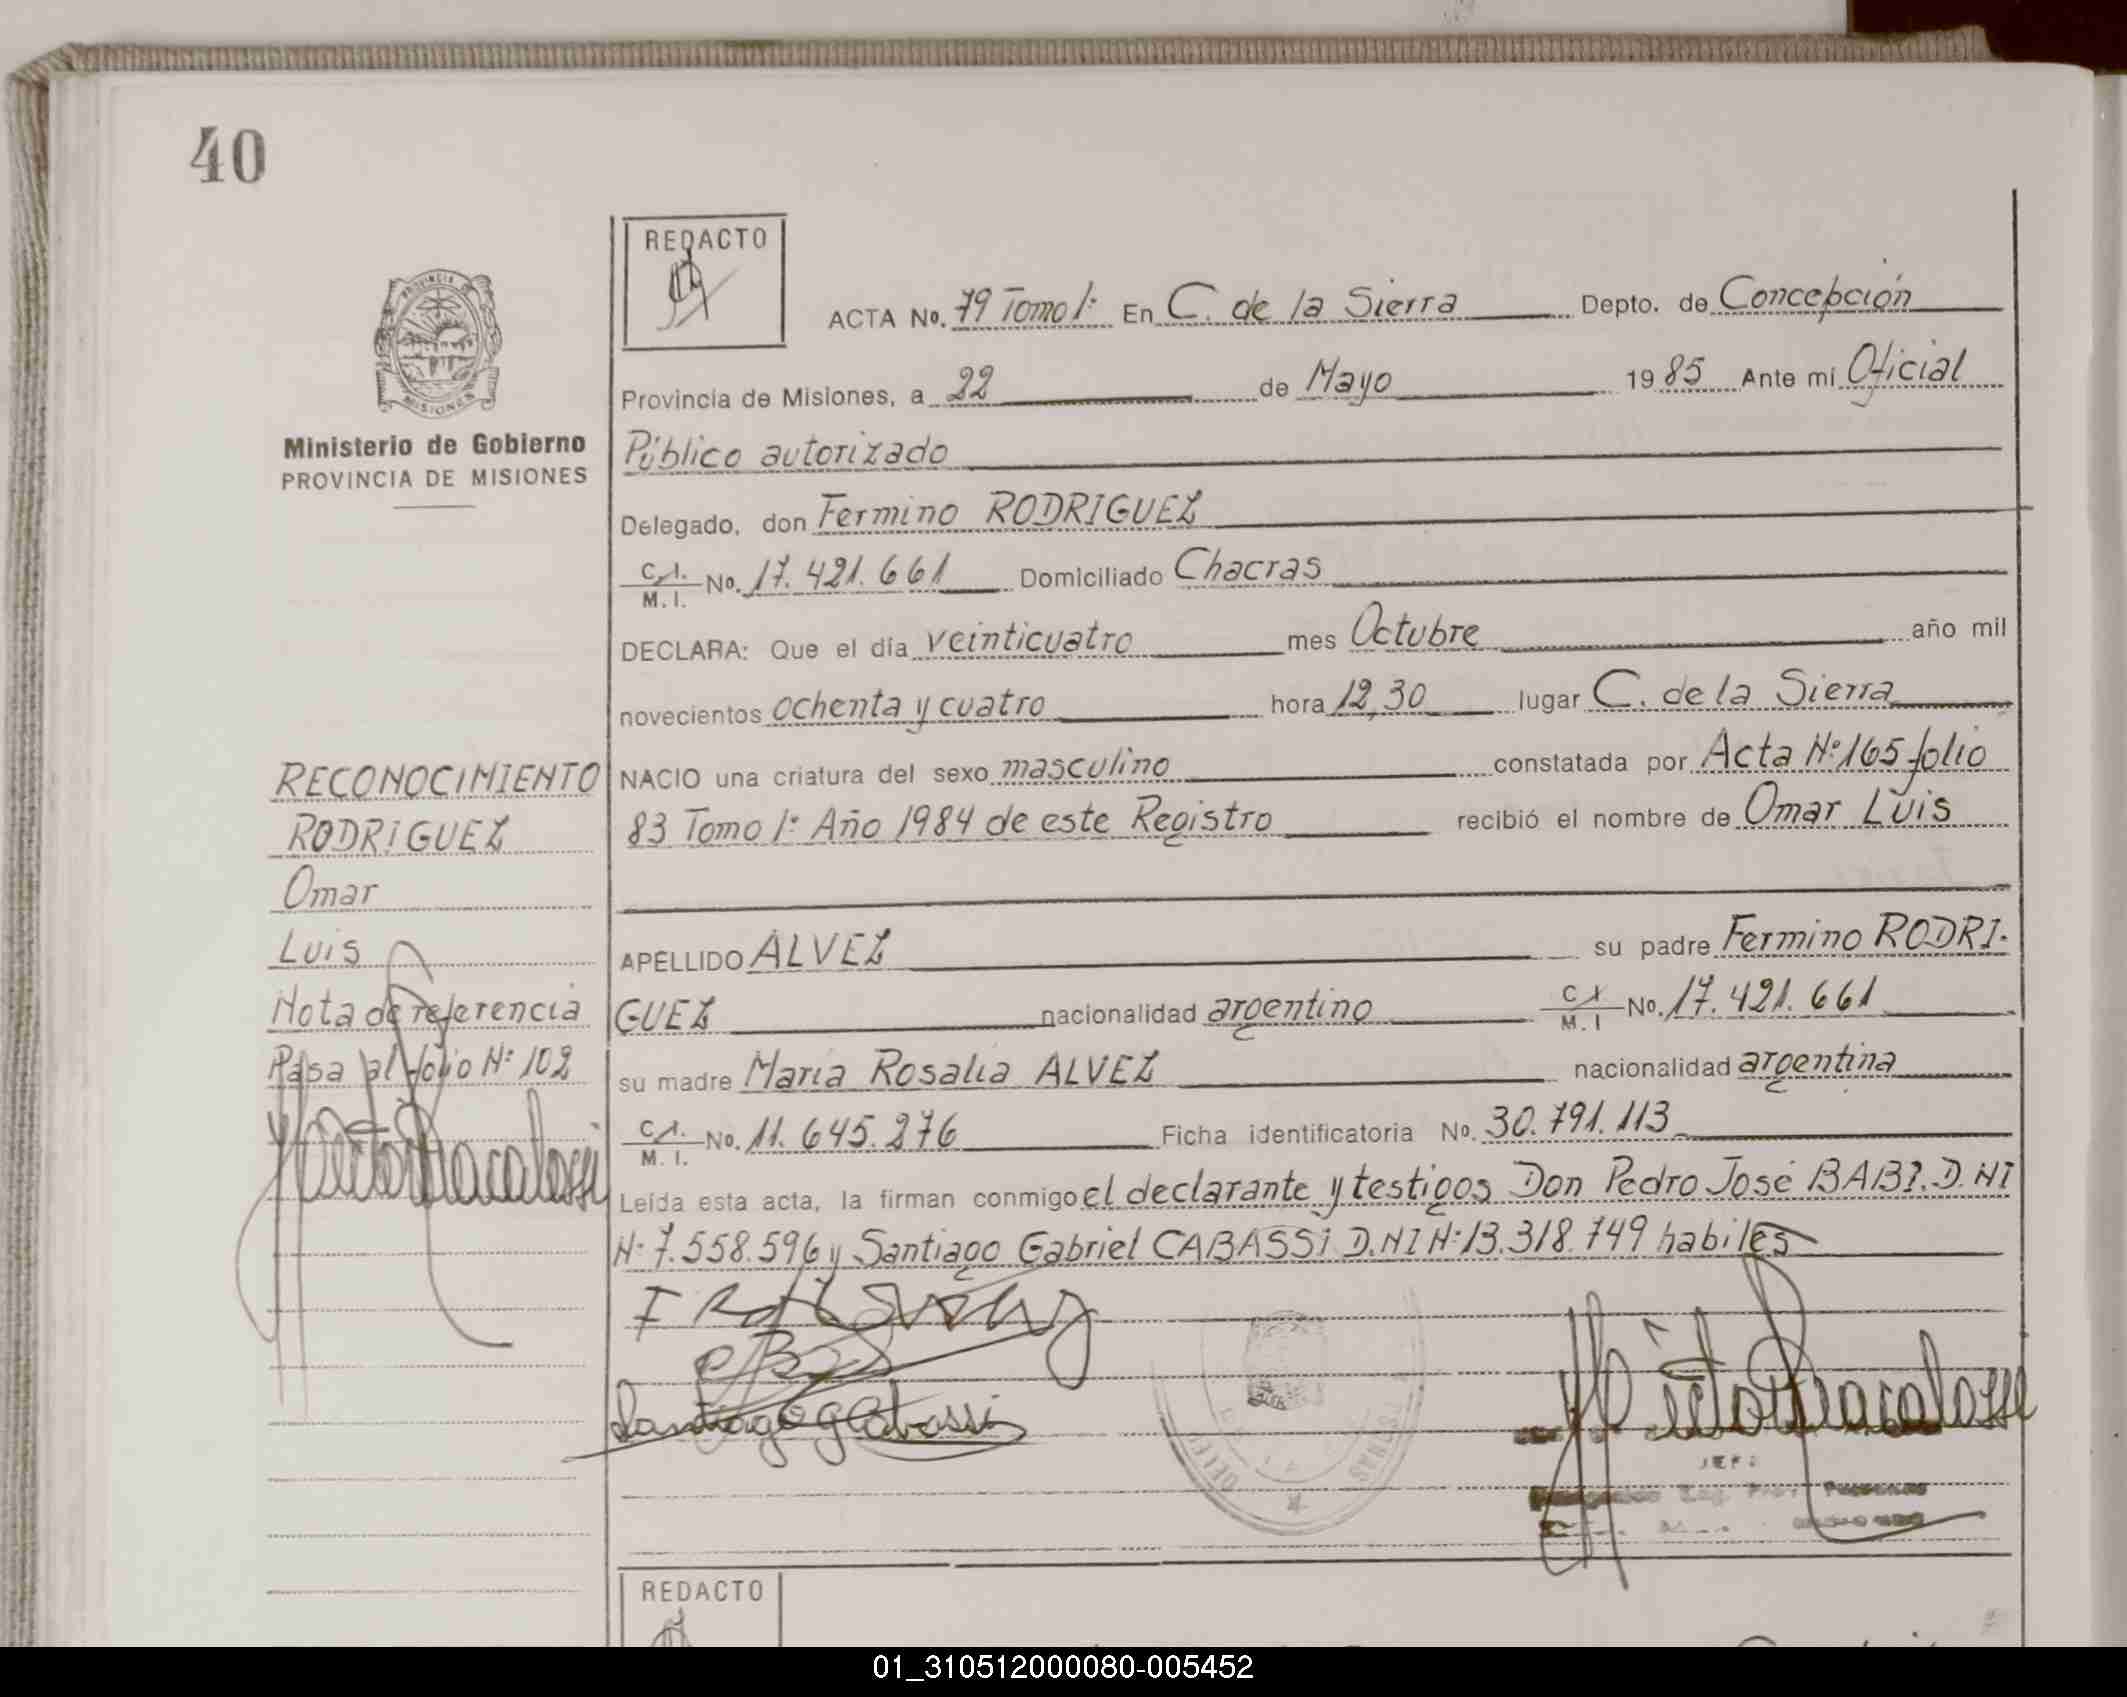 40
REDACTO
ACTA No. 79 Tomo 1: En C. de la Sierra Depto. de Concepción
Provincia de Misiones, a 22 de Mayo 1985 Ante mí Oficial
Público autorizado
Delegado, don Fermino RODRIGUEZ
C.I. M.I. No. 17.421.661 Domiciliado Chacras
DECLARA: Que el día veinticuatro mes Octubre año mil
novecientos ochenta y cuatro hora 12,30 lugar C. de la Sierra
NACIO una criatura del sexo masculino constatada por Acta N: 165 folio
83 Tomo 1: Año 1984 de este Registro recibió el nombre de Omar Luis
APELLIDO ALVEZ su padre Fermino RODRI-
GUEZ nacionalidad argentino C.I. M.I No. 17.421.661
su madre María Rosalía ALVEZ nacionalidad argentina
C.I. M.I. No. 11.645.276 Ficha identificatoria No. 30.791.113
Leída esta acta, la firman conmigo el declarante y testigos Don Pedro José BABI. D.NI
N: 7.558.596 y Santiago Gabriel CABASSI D.NI N: 13.318.749 habiles
Santiago G Cabassi
JEFE
PROVINCIA DE
MISIONES
Ministerio de Gobierno
PROVINCIA DE MISIONES
RECONOCIMIENTO
RODRIGUEZ
Omar
Luis
Nota de referencia
Pasa al folio N: 102
REDACTO
01_310512000080-005452